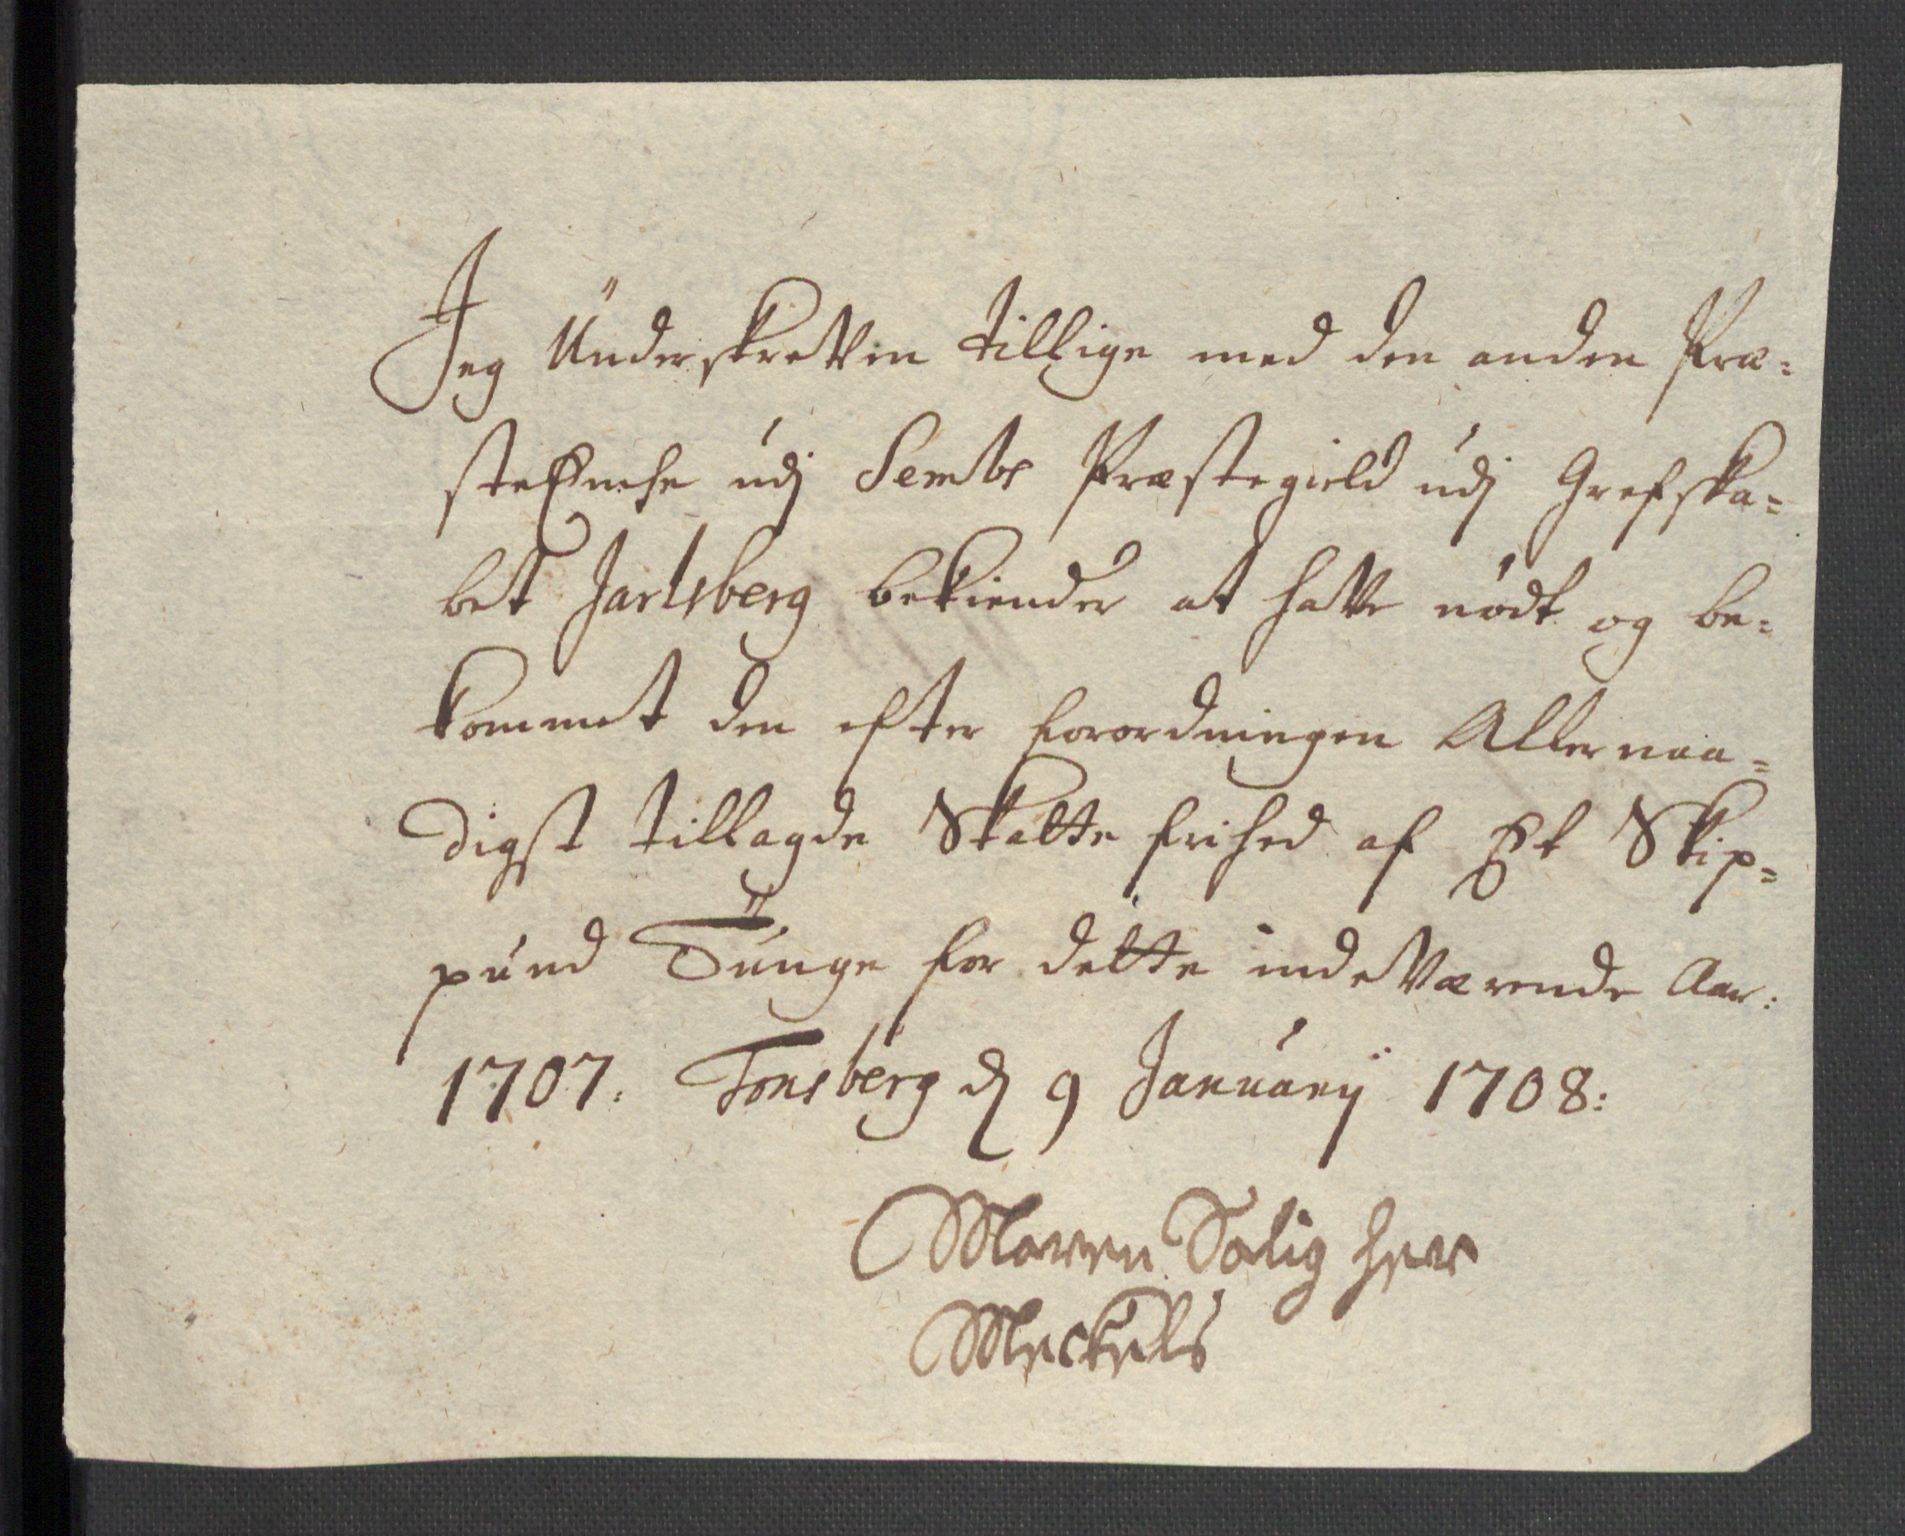 Jeg Underskreven tillige med den anden Præ=
steEnche udj Sembs Præstegield udj Grefska=
bet Jarlsberg bekiender at hafve nødt og be=
kommet den efter forordningen Allernaa=
digst tillagde Skatte frihed af Et Skip=
pund Tunge for dette indeværende Aar:
1707. Tønsberg d 9 Januarij 1708:
Maren Salig her
Meckels